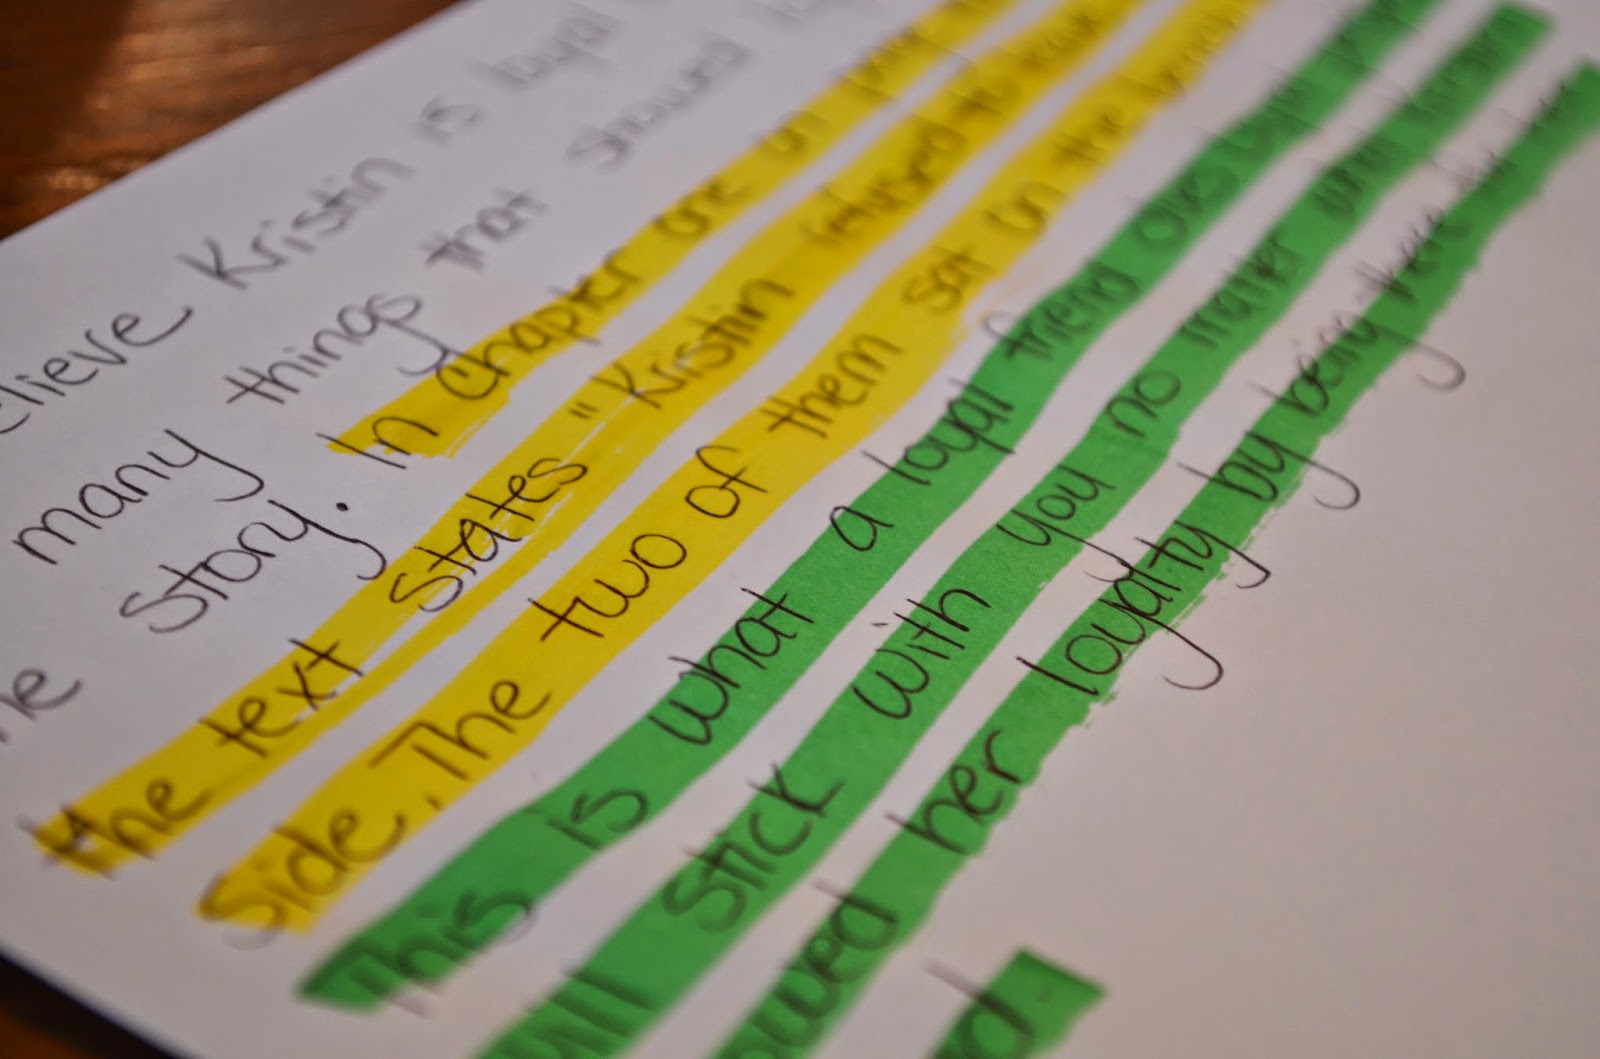 elieve Kristin is loyal
many things that showed
story. In Chapter one on page
the text states "Kristin refused to leave
side. The two of them sat on the bench
This is what a loyal friend does
stick with you no matter what
owed her loyalty by being there
d